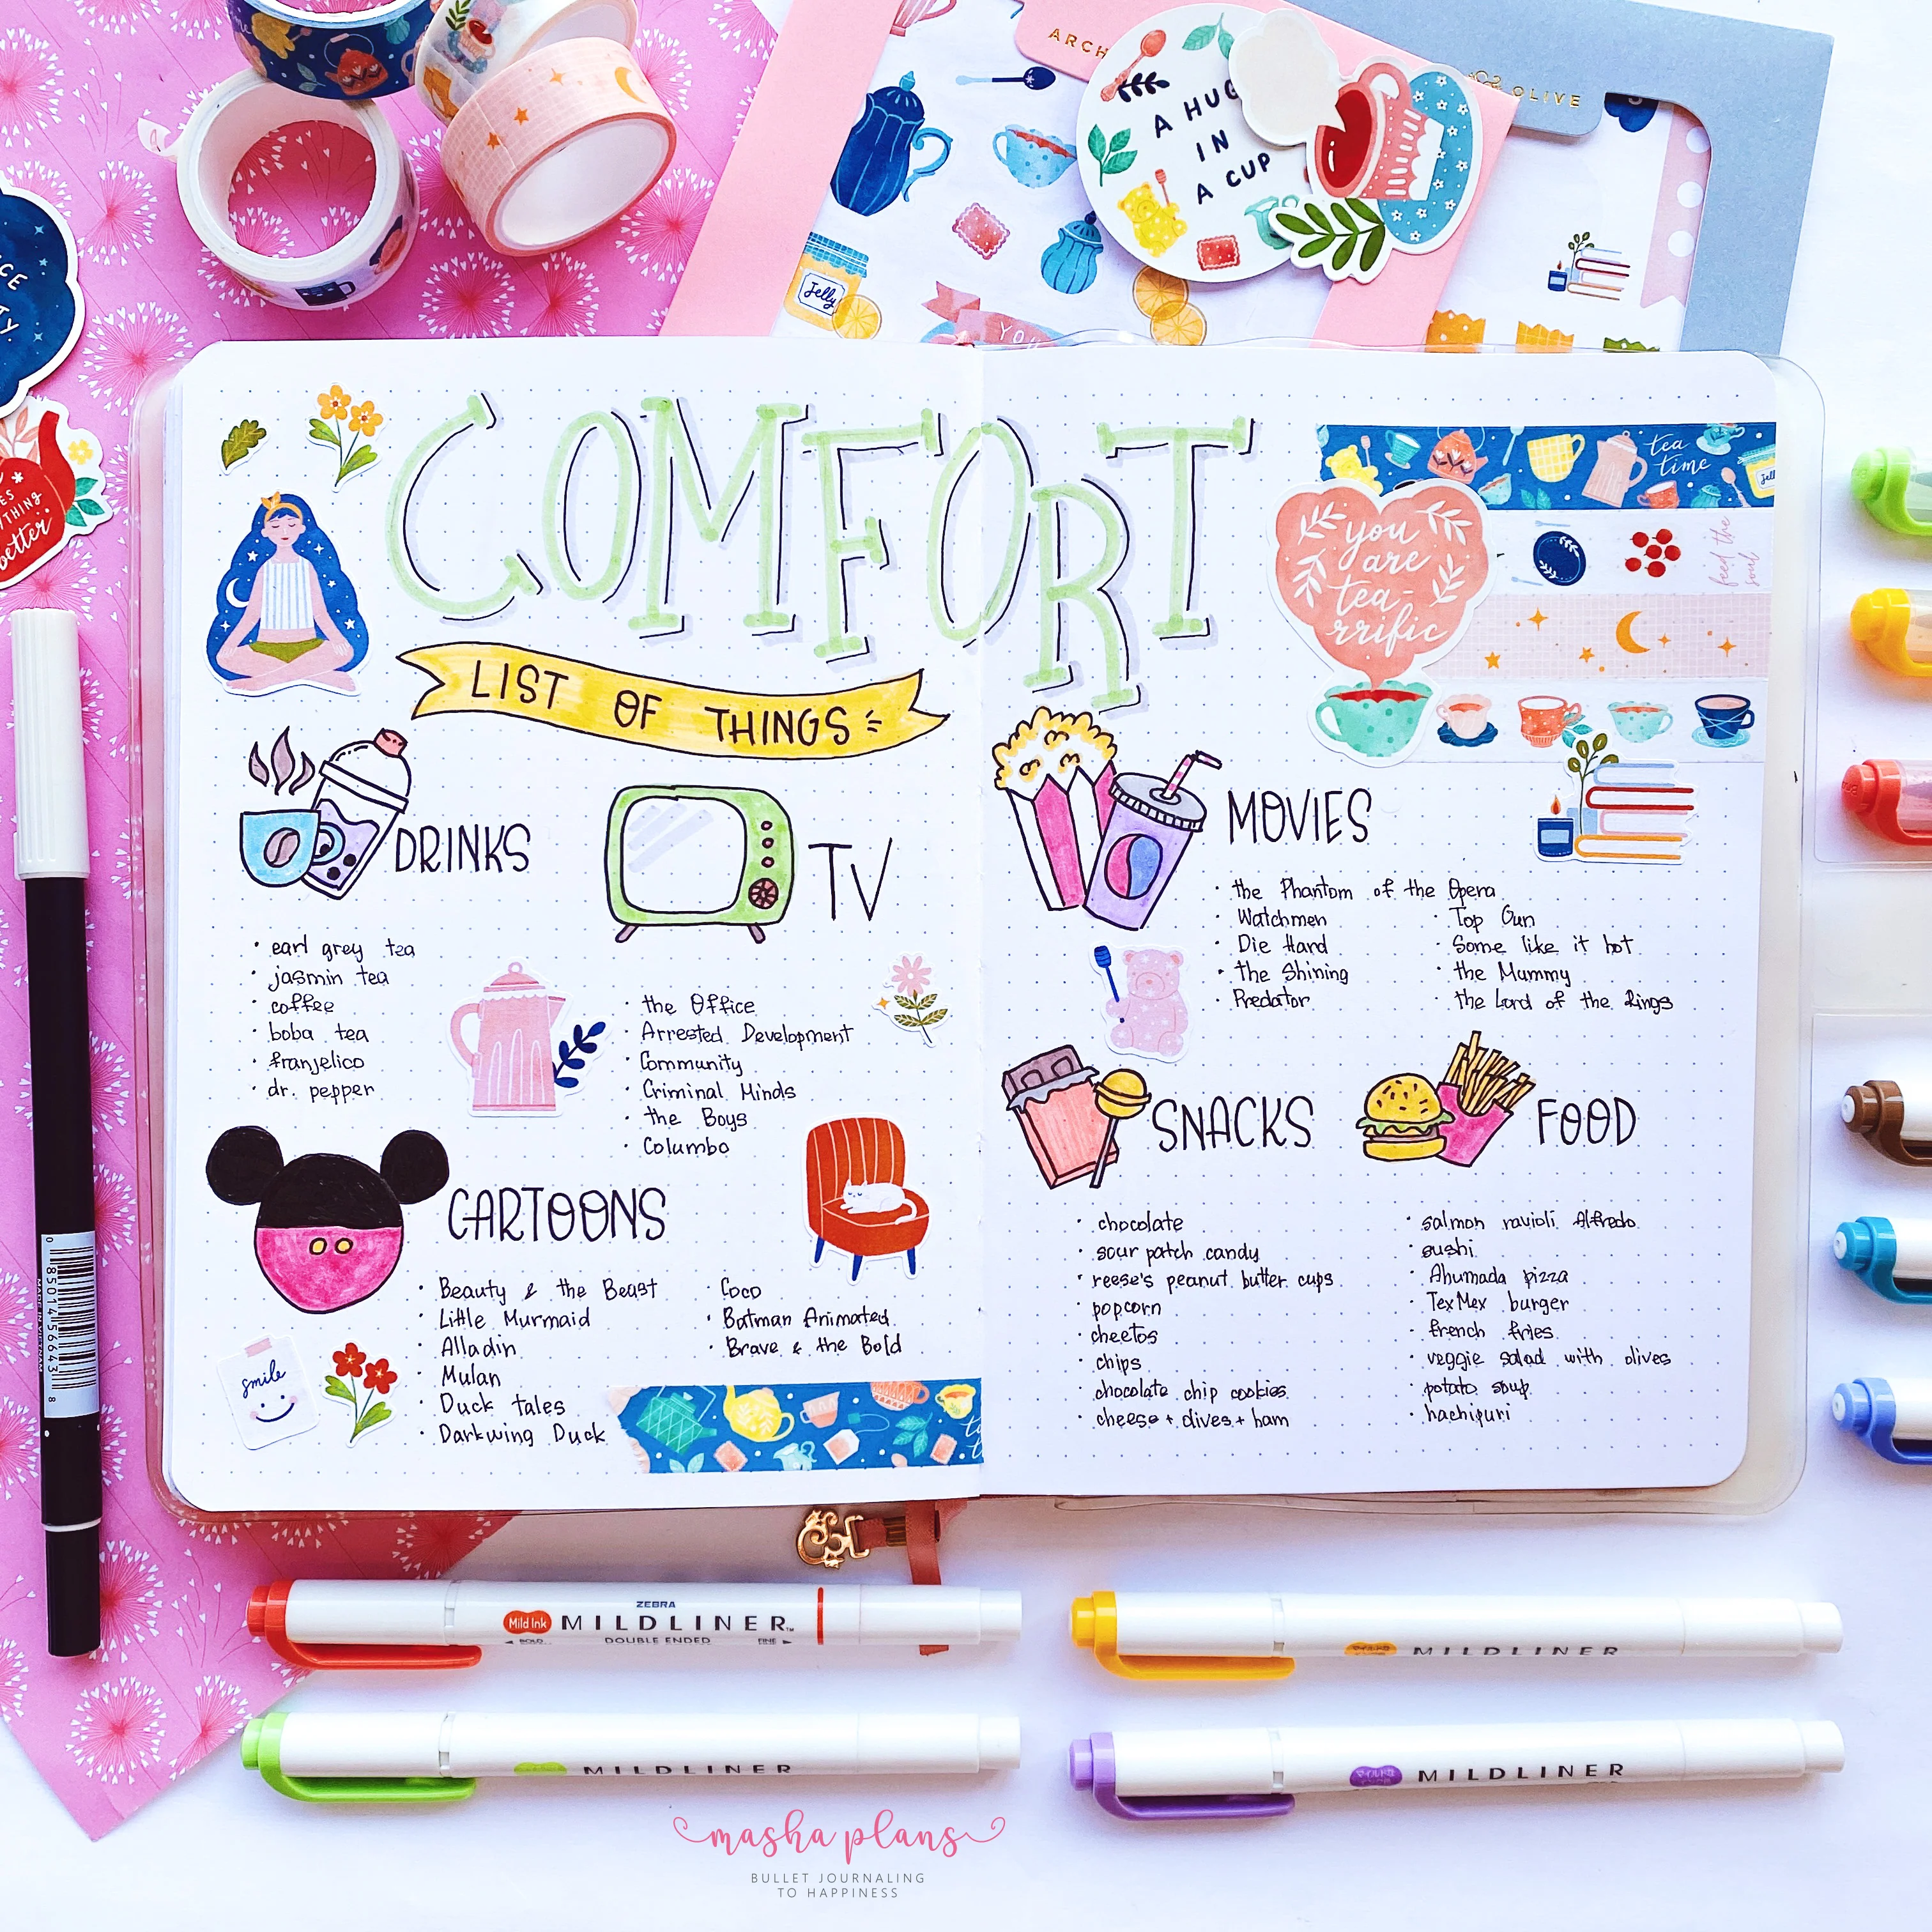 ARCH
OLIVE
A HUG
IN
A CUP
Jelly
YOU
CE
TY
ES
YTHING
better
COMFORT
LIST OF THINGS
tea
time
jell
you
are
tea-
rrific
feed the
soul
DRINKS
· earl grey tea
· jasmin tea
· coffee
· boba tea
· franjelico
· dr. pepper
TV
· the Office
· Arrested Development
· Community
· Criminal Minds
· the Boys
· Columbo
CARTOONS
· Beauty & the Beast
· Little Murmaid
· Alladin
· Mulan
· Duck tales
· Darkwing Duck
· Coco
· Batman Animated
· Brave & the Bold
smile
MOVIES
· the Phantom of the Opera
· Watchmen
· Die Hard
· the Shining
· Predator
· Top Gun
· Some like it hot
· the Mummy
· the Lord of the Rings
SNACKS
· chocolate
· sour patch candy
· reese's peanut butter cups
· popcorn
· cheetos
· chips
· chocolate chip cookies
· cheese + olives + ham
FOOD
· salmon ravioli Alfredo
· sushi
· Ahumada pizza
· TexMex burger
· french fries
· veggie salad with olives
· potato soup
· hachipuri
0 85014 56643 8
MADE IN VIETNAM
ZEBRA
Mild Ink MILDLINER™
BOLD DOUBLE ENDED FINE
MILDLINER
MILDLINER
マイルド MILDLINER
masha plans
BULLET JOURNALING
TO HAPPINESS